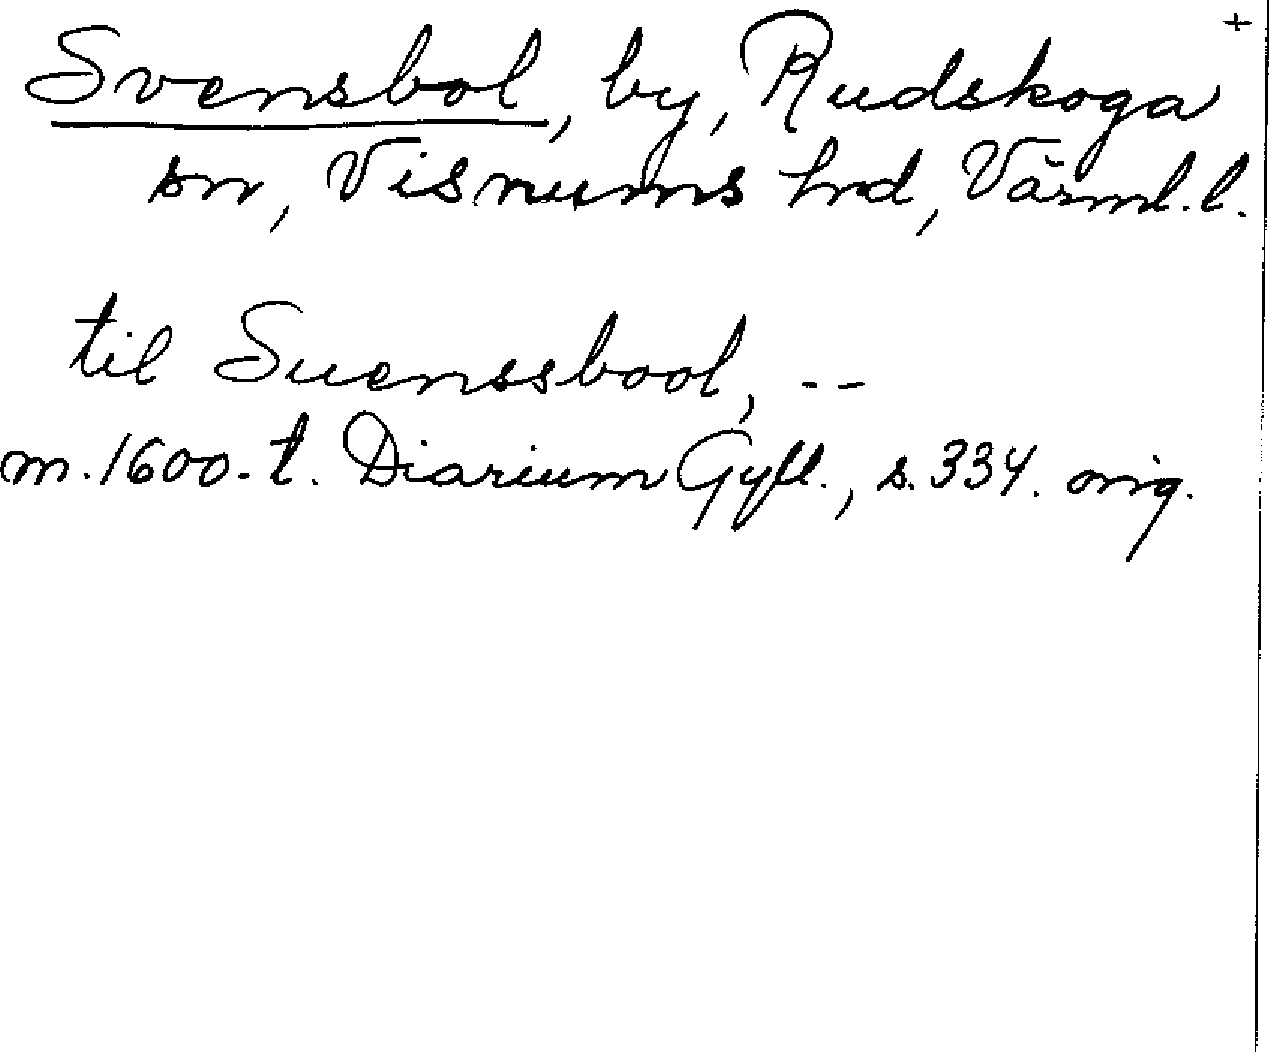 +
Svensbol, by, Rudskoga
sn, Visnums hrd, Värml. l.
til Suenssbool, --
m. 1600-t. Diarium Gyll., s. 334. orig.